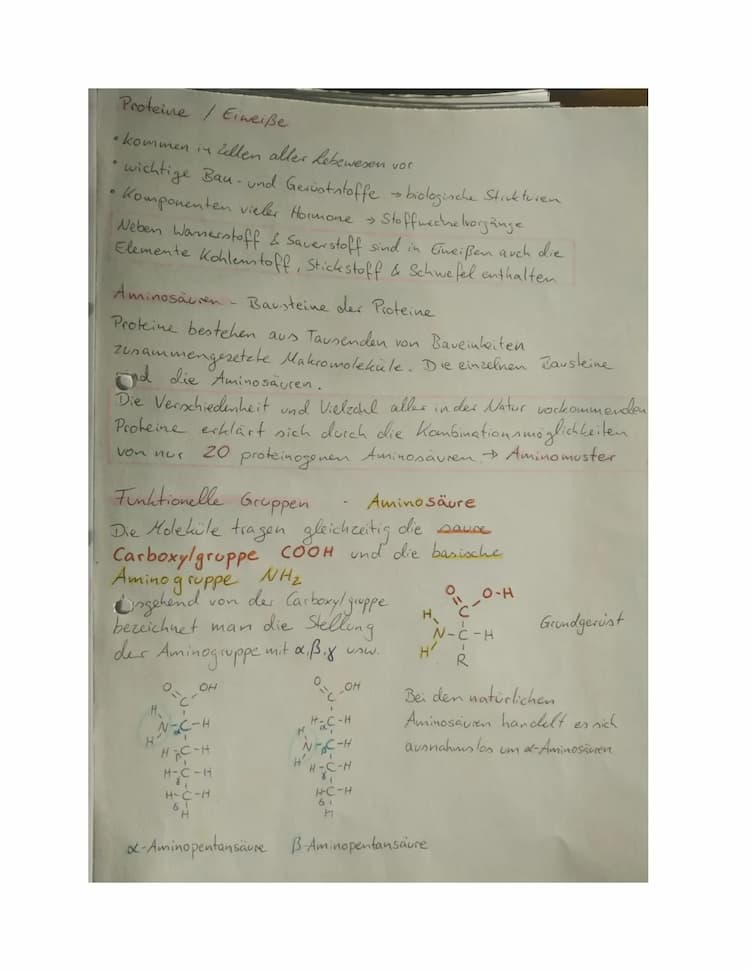 Proteine / Eiweiße
• kommen in Zellen aller Lebewesen vor
• wichtige Bau- und Gerüststoffe → biologische Strukturen
• Komponenten vieler Hormone → Stoffwechselvorgänge
Neben Wasserstoff & Sauerstoff sind in Eiweißen auch die
Elemente Kohlenstoff, Stickstoff & Schwefel enthalten
Aminosäuren - Bausteine der Proteine
Proteine bestehen aus Tausenden von Baueinheiten
zusammengesetzte Makromoleküle. Die einzelnen Bausteine
sind die Aminosäuren.
Die Verschiedenheit und Vielzahl aller in der Natur vorkommenden
Proteine erklärt sich durch die Kombinationsmöglichkeiten
von nur 20 proteinogenen Aminosäuren → Aminomuster
Funktionelle Gruppen - Aminosäure
Die Moleküle tragen gleichzeitig die saure
Carboxylgruppe COOH und die basische
Aminogruppe NH₂
Ausgehend von der Carboxylgruppe
bezeichnet man die Stellung
der Aminogruppe mit α, β, γ usw.
O O-H
C
H
N-C-H
H
R
Grundgerüst
Bei den natürlichen
Aminosäuren handelt es sich
ausnahmslos um α-Aminosäuren
O OH
C
H
N-C-H
α
H
H-C-H
β
H-C-H
γ
H-C-H
δ
H
α-Aminopentansäure
O OH
C
H-C-H
α
H
N-C-H
β
H
H-C-H
γ
H-C-H
δ
H
β-Aminopentansäure